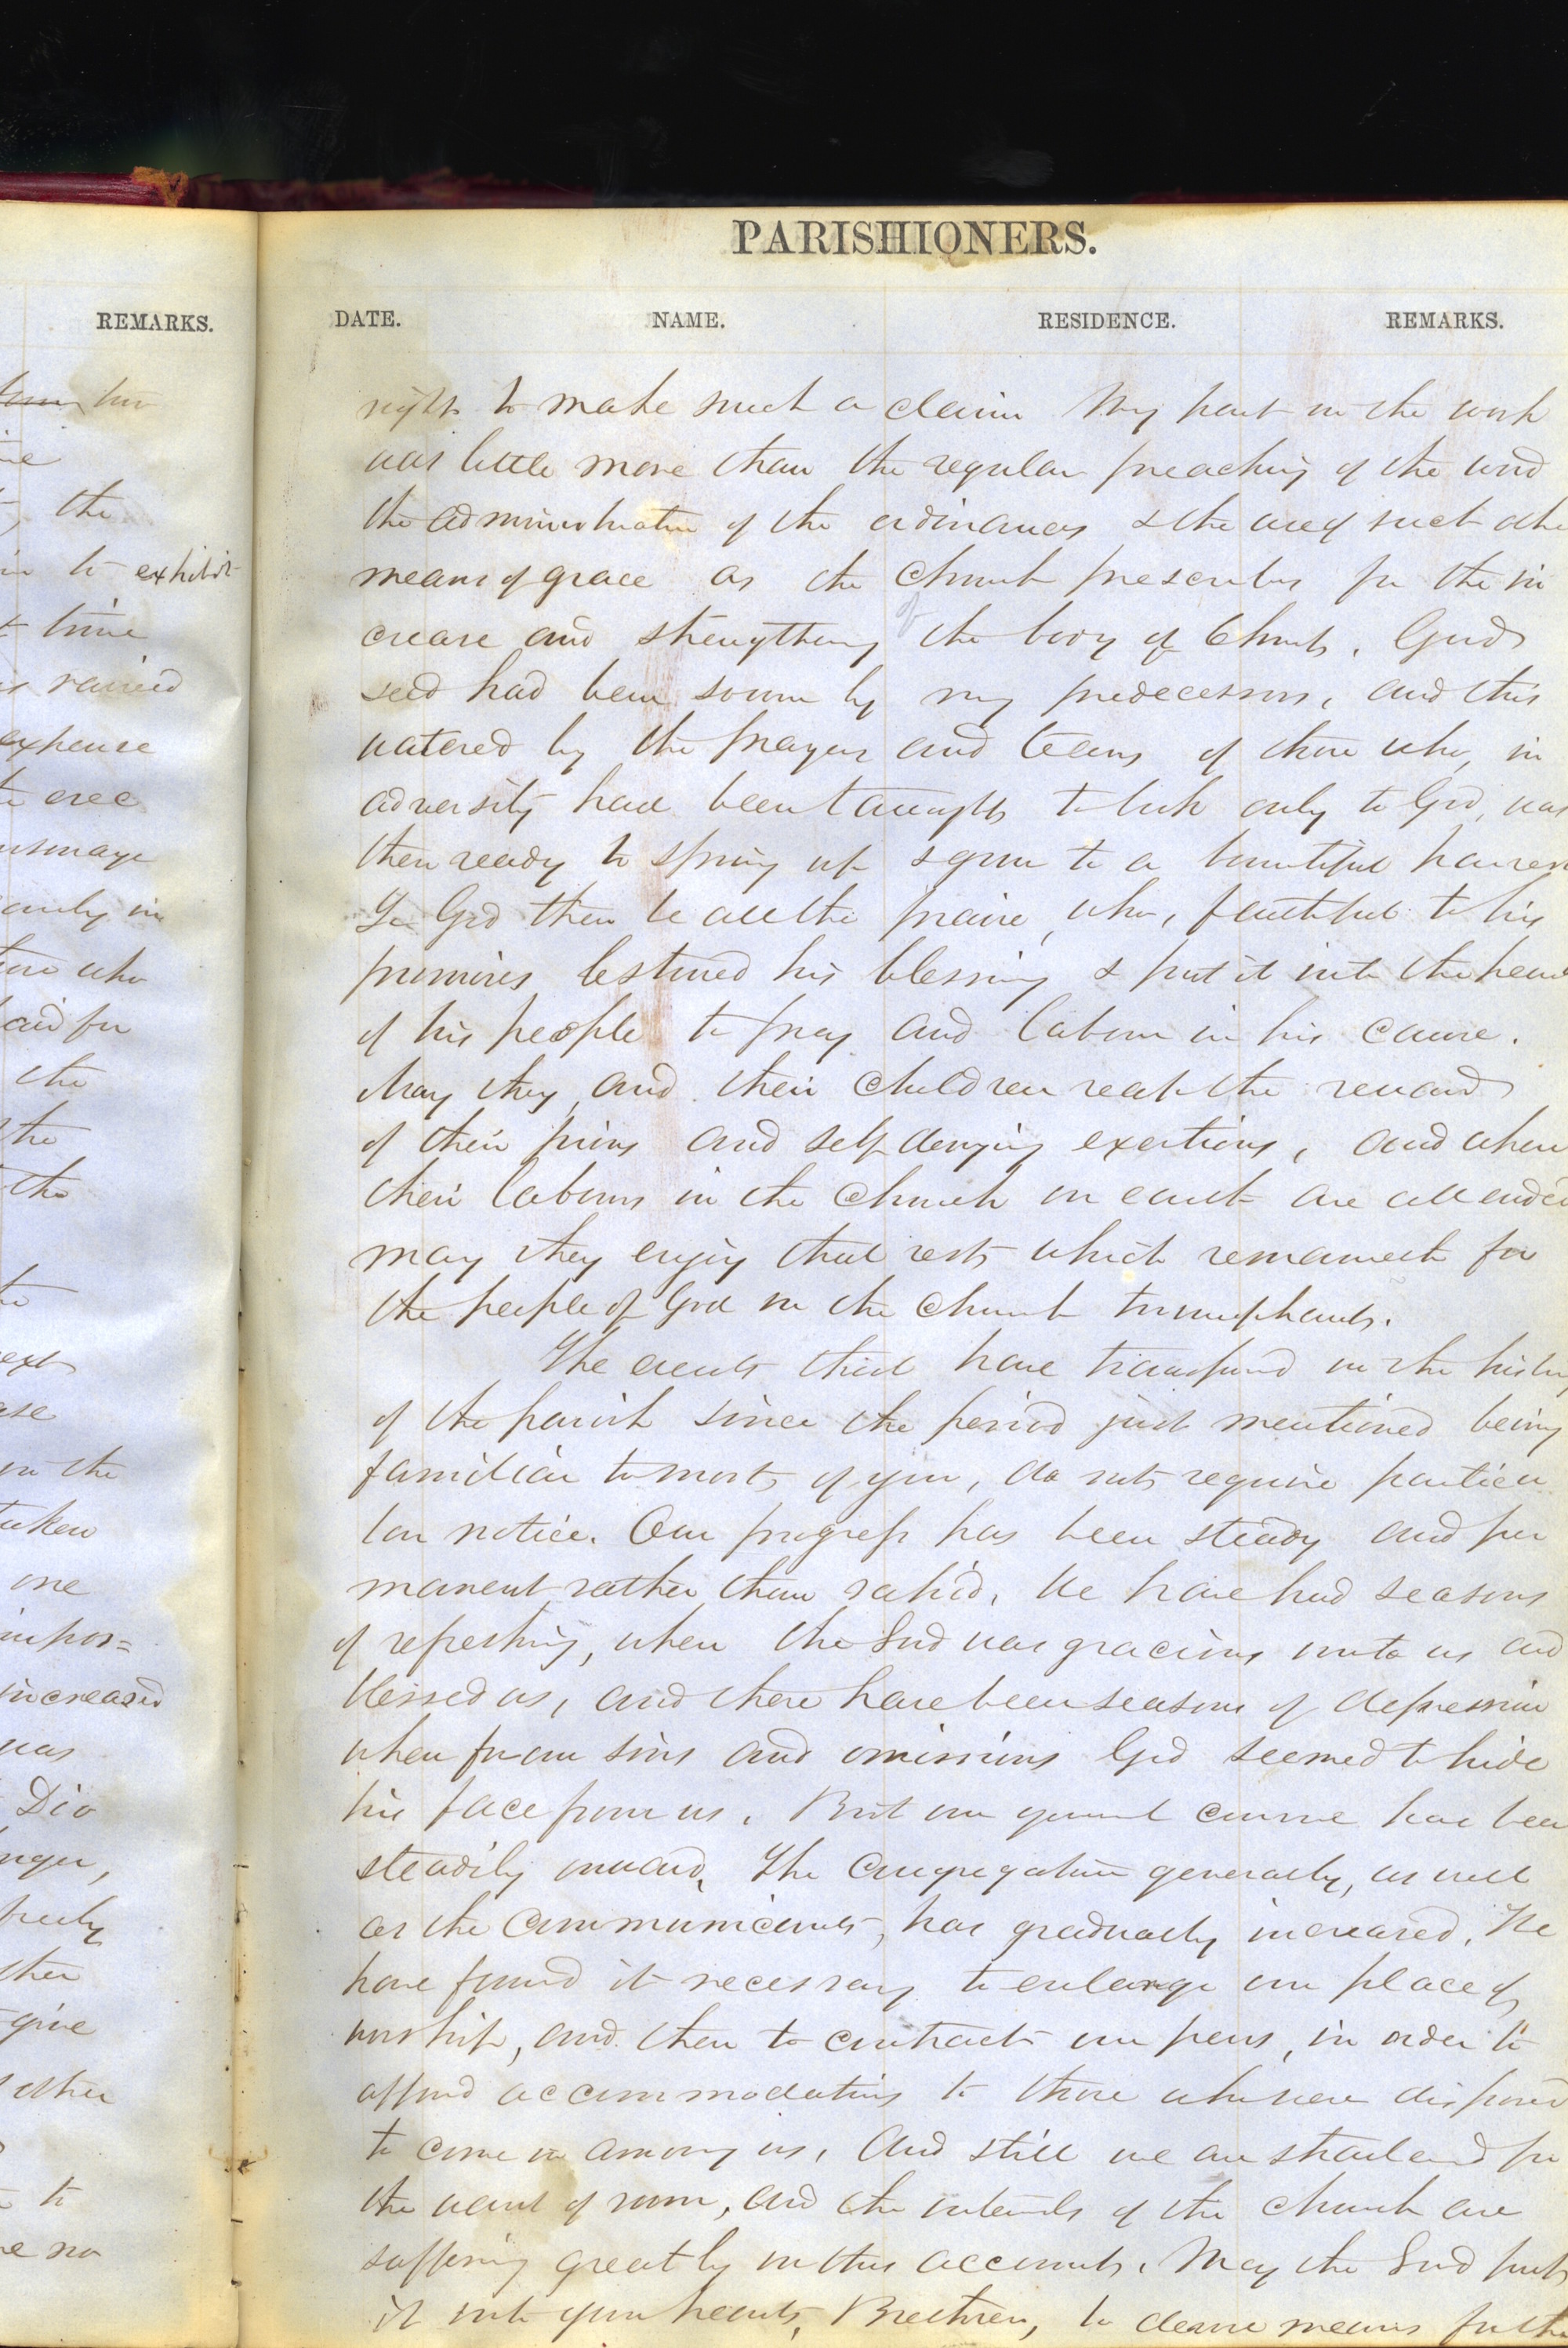 PARISHIONERS.
REMARKS.
DATE. NAME. RESIDENCE. REMARKS.
the
in to exhibit
time
raised
expense
to erec
arsonage
early in
who
aid for
the
the
the
to
ext
ase
in the
taken
one
impor=
increased
was
Dio
nger,
freely
ther
give
other
to
no
right to make such a claim My part in the work
was little more than the regular preaching of the word
the administration of the ordinances & the use of such othe
means of grace as the Church prescribes for the in
crease and strengthening of the body of Christ. Good
seed had been sown by my predecessors, and this
watered by the prayers and tears of those who, in
adversity had been taught to look only to God, was
then ready to spring up & grow to a bountiful harves
To God then be all the praise, who, faithful to his
promises bestowed his blessing & put it into the hear
of his people to pray and labour in his cause.
May they and their children reap the reward
of their pious and self denying exertions, and when
their labours in the Church on earth are all ended
may they enjoy that rest which remaineth for
the people of God in the Church triumphant.
The events that have transpired in the histo
of the parish since the period just mentioned being
familiar to most of you, do not require particu
lar notice. Our progress has been steady and per
manent rather than rapid. We have had seasons
of refreshing, when the Lord was gracious unto us and
blessed us, and there have been seasons of depression
when for our sins and omissions God seemed to hide
his face from us. But our general course has been
steadily onward. The Congregation generally, as well
as the Communicants, has gradually increased. We
have found it necessary to enlarge our place of
worship, and then to contract our pews, in order to
afford accommodations to those who were disposed
to come in among us. And still we are straitened for
the want of room, and the interests of the Church are
suffering greatly on this account. May the Lord put
it into your hearts, Brethren, to devise means for the